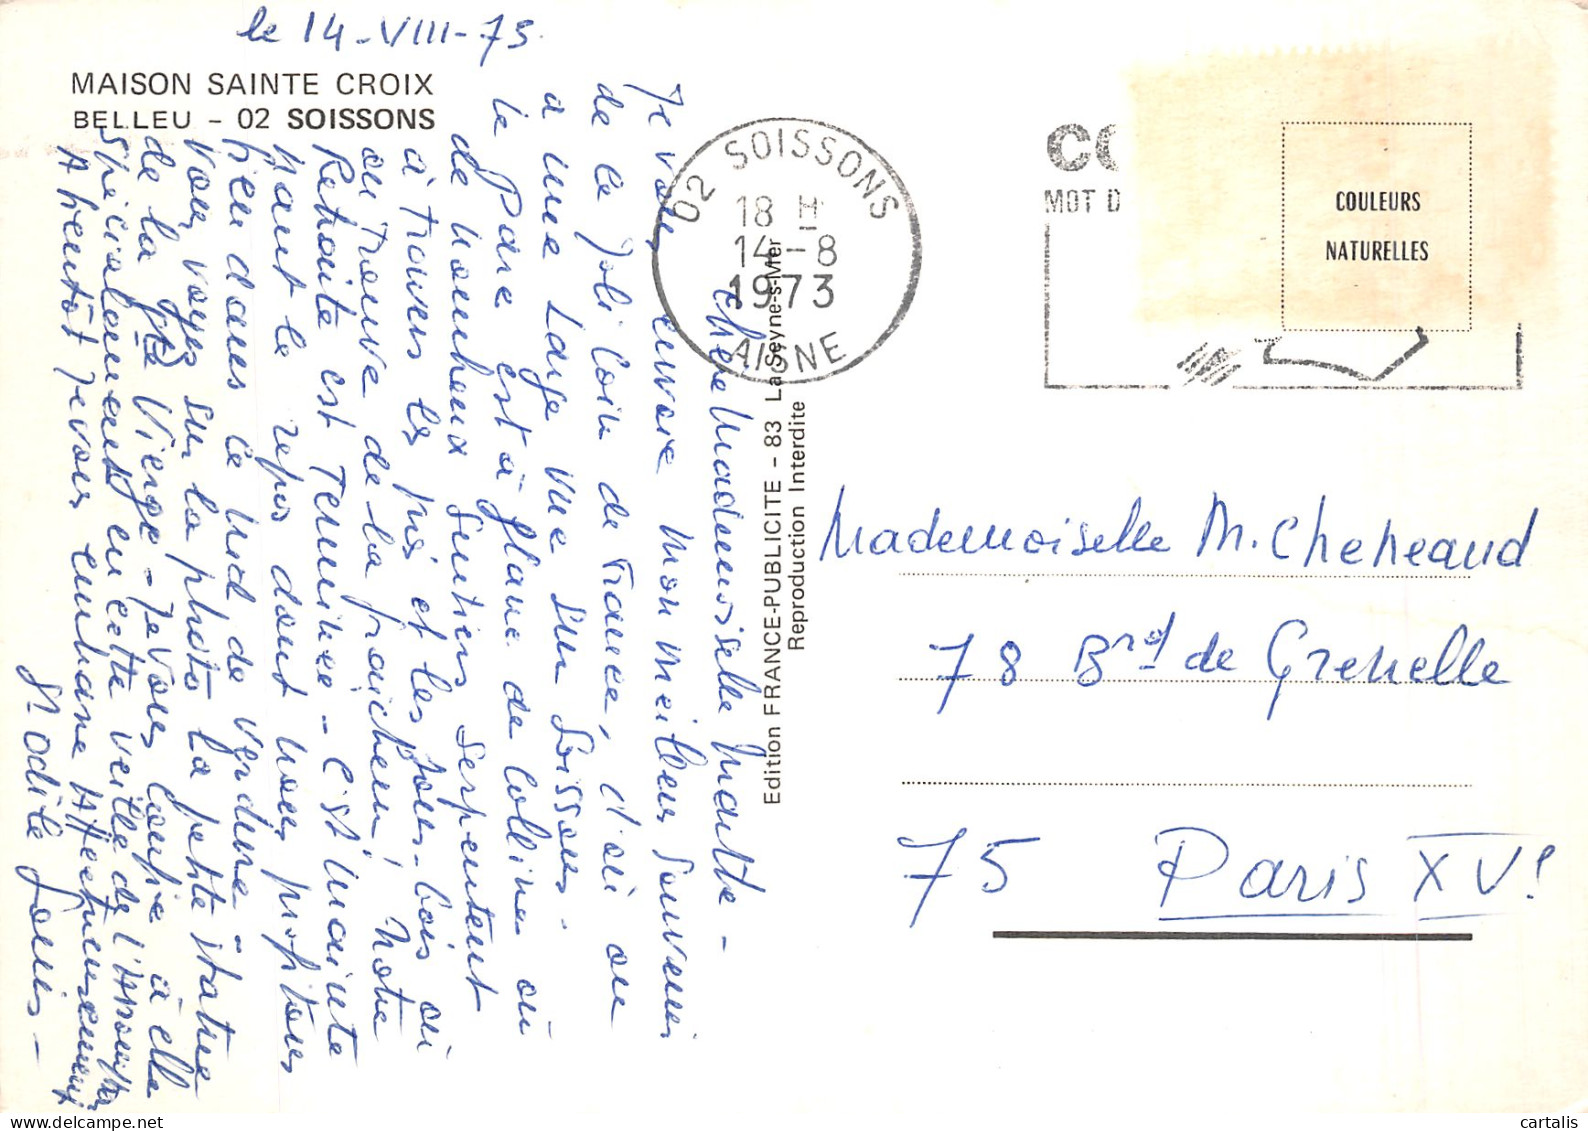 le 14-VIII-73.
MAISON SAINTE CROIX
BELLEU - 02 SOISSONS
chère Mademoiselle Marthe -
Je vous envoie mon meilleur souvenir
de ce joli coin de France, d'où on
a une large vue sur Soissons.
Le Parc est à flanc de colline où
de nombreux sentiers serpentent
à travers les prés et les sous-bois où
on trouve de la fraîcheur! Notre
Retraite est terminée - C'est mainte
nant le repos dont nous profitons
bien dans ce nid de verdure -
Vous voyez sur la photo la petite statue
de la Ste Vierge - Je vous confie à elle
spécialement en cette veille de l'Assomption
A bientôt je vous embrasse Affectueusement
Sr Odile Louis -
02 SOISSONS
18 H
14-8
1973
AISNE
Edition FRANCE-PUBLICITE - 83 La Seyne-s-Mer
Reproduction Interdite
CO
MOT D
COULEURS
NATURELLES
Mademoiselle M. Cheneaud
78 Brd de Grenelle
75 Paris XVe
cartalis